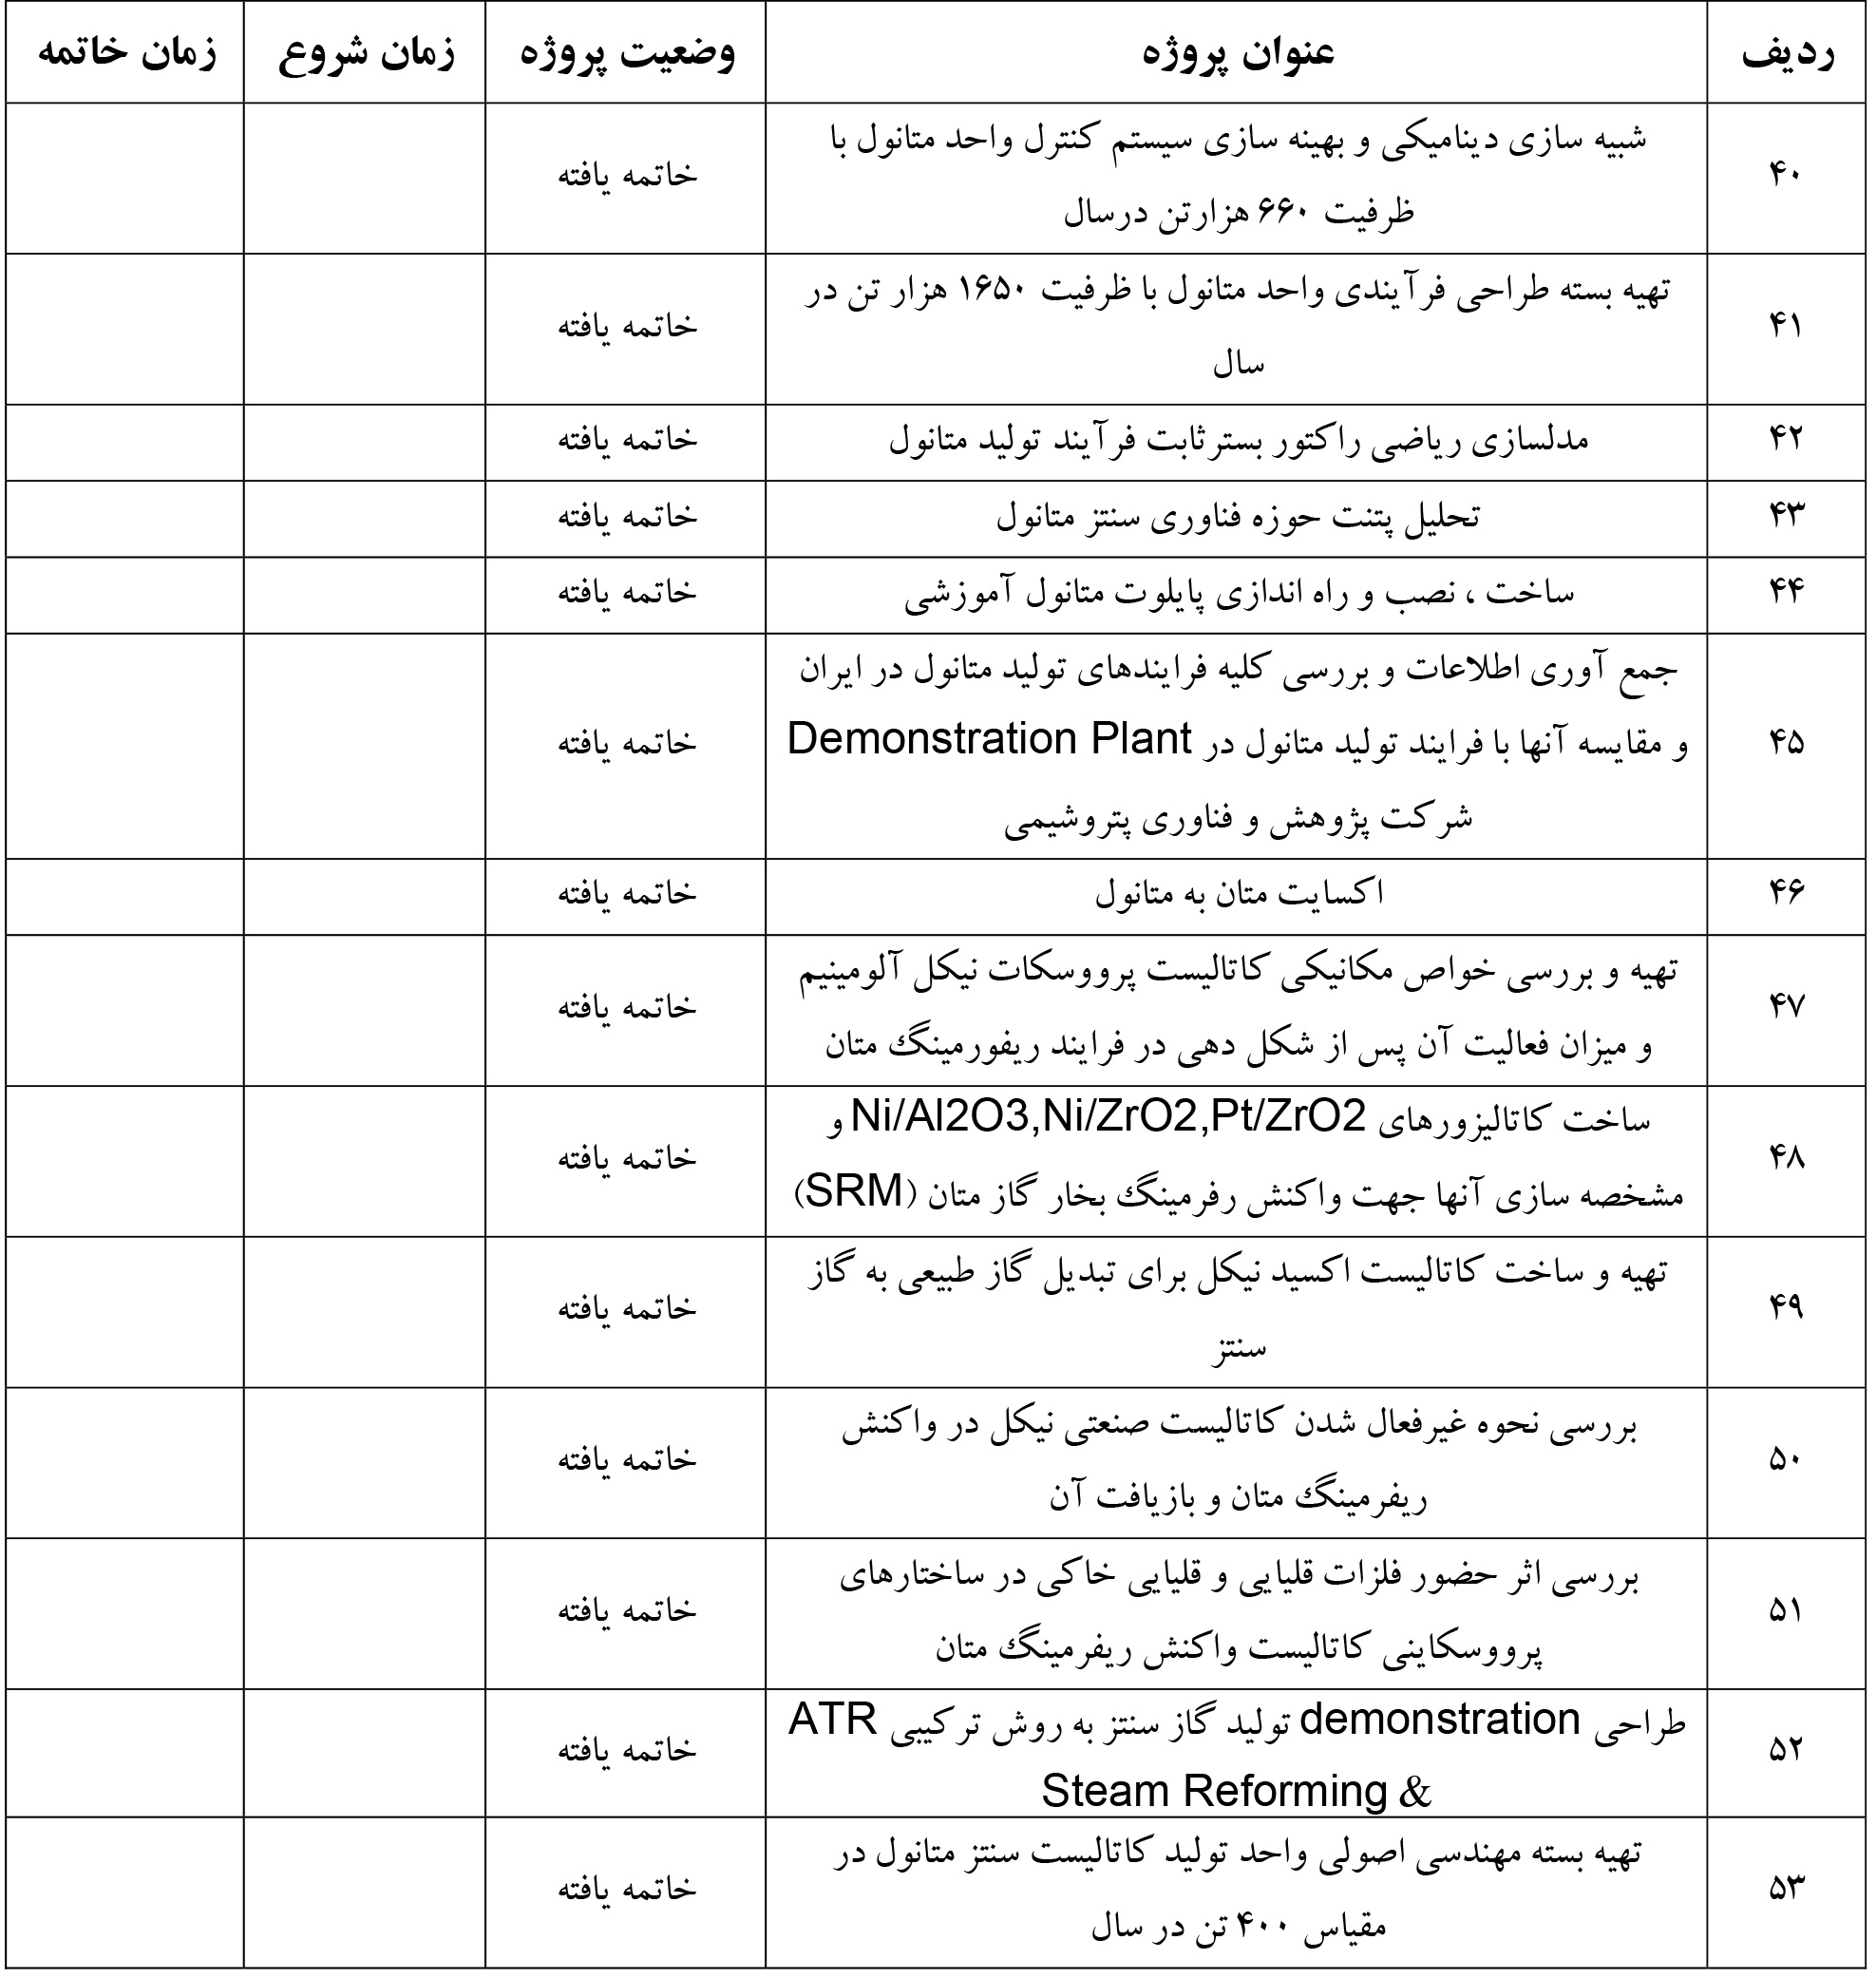 ردیف عنوان پروژه وضعیت پروژه زمان شروع زمان خاتمه
۴۰ شبیه سازی دینامیکی و بهینه سازی سیستم کنترل واحد متانول با
ظرفیت ۶۶۰ هزارتن درسال خاتمه یافته
۴۱ تهیه بسته طراحی فرآیندی واحد متانول با ظرفیت ۱۶۵۰ هزار تن در
سال خاتمه یافته
۴۲ مدلسازی ریاضی راکتور بسترثابت فرآیند تولید متانول خاتمه یافته
۴۳ تحلیل پتنت حوزه فناوری سنتز متانول خاتمه یافته
۴۴ ساخت ، نصب و راه اندازی پایلوت متانول آموزشی خاتمه یافته
۴۵ جمع آوری اطلاعات و بررسی کلیه فرایندهای تولید متانول در ایران
و مقایسه آنها با فرایند تولید متانول در Demonstration Plant
شرکت پژوهش و فناوری پتروشیمی خاتمه یافته
۴۶ اکسایت متان به متانول خاتمه یافته
۴۷ تهیه و بررسی خواص مکانیکی کاتالیست پرووسکات نیکل آلومینیم
و میزان فعالیت آن پس از شکل دهی در فرایند ریفورمینگ متان خاتمه یافته
۴۸ ساخت کاتالیزورهای Ni/Al2O3,Ni/ZrO2,Pt/ZrO2 و
مشخصه سازی آنها جهت واکنش رفرمینگ بخار گاز متان (SRM) خاتمه یافته
۴۹ تهیه و ساخت کاتالیست اکسید نیکل برای تبدیل گاز طبیعی به گاز
سنتز خاتمه یافته
۵۰ بررسی نحوه غیرفعال شدن کاتالیست صنعتی نیکل در واکنش
ریفرمینگ متان و بازیافت آن خاتمه یافته
۵۱ بررسی اثر حضور فلزات قلیایی و قلیایی خاکی در ساختارهای
پرووسکاینی کاتالیست واکنش ریفرمینگ متان خاتمه یافته
۵۲ طراحی demonstration تولید گاز سنتز به روش ترکیبی ATR
& Steam Reforming خاتمه یافته
۵۳ تهیه بسته مهندسی اصولی واحد تولید کاتالیست سنتز متانول در
مقیاس ۴۰۰ تن در سال خاتمه یافته